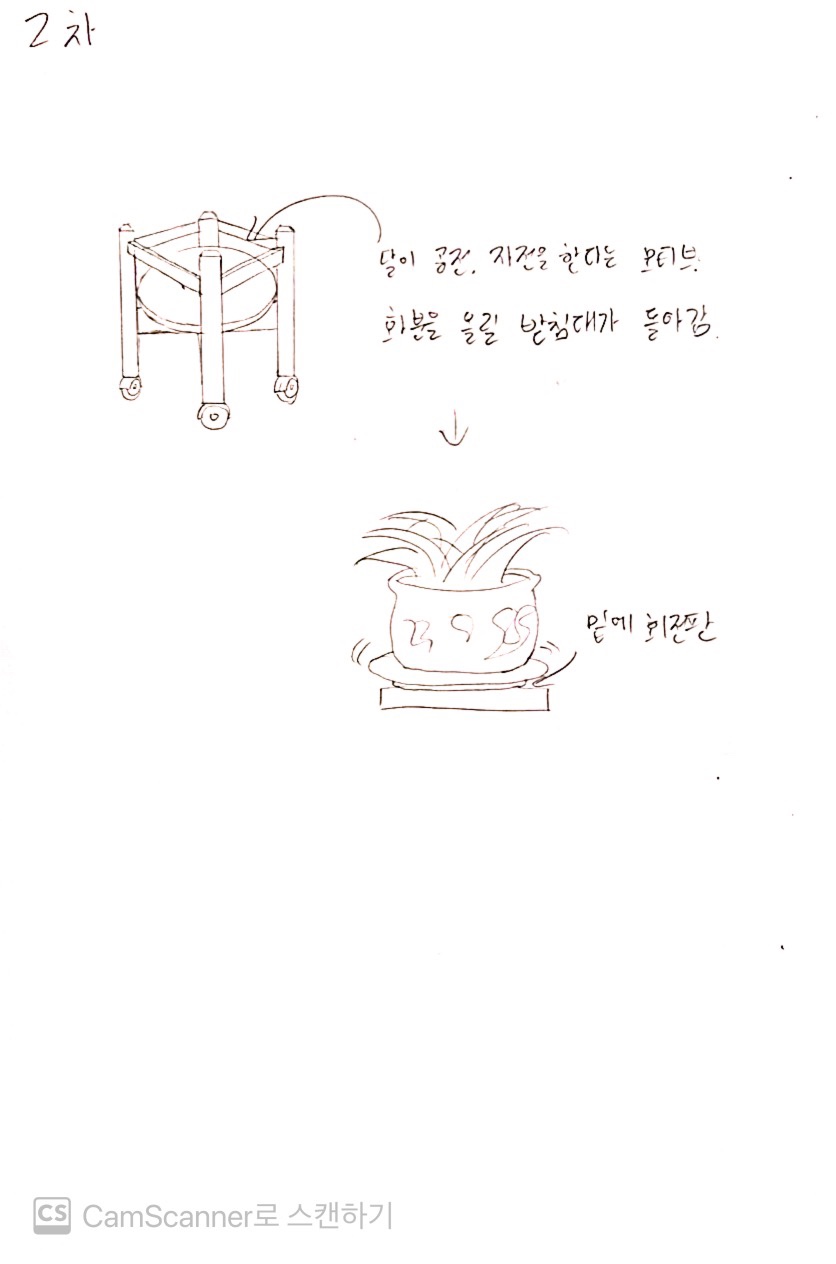 2차
달이 공전, 자전을 한다는 모티브.
화분을 올릴 받침대가 돌아감.
밑에 회전판
CS CamScanner로 스캔하기